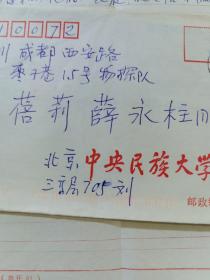 10072
川 成都 西安路
枣子巷 15号 物探队
蓓莉 薛永柱
北京 中央民族大学
三高层705 刘
邮政